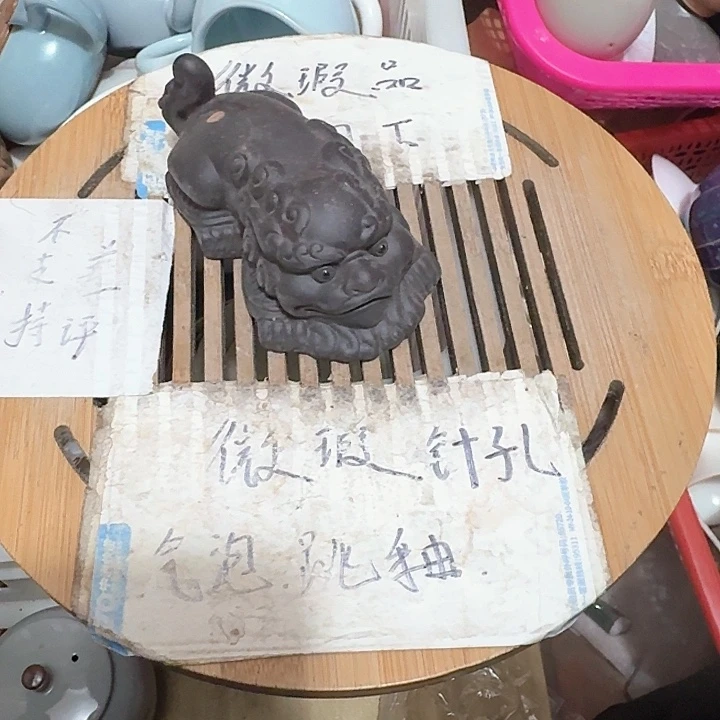 微瑕品
工
不
走
持
评
微瑕针孔
气泡.跳釉.